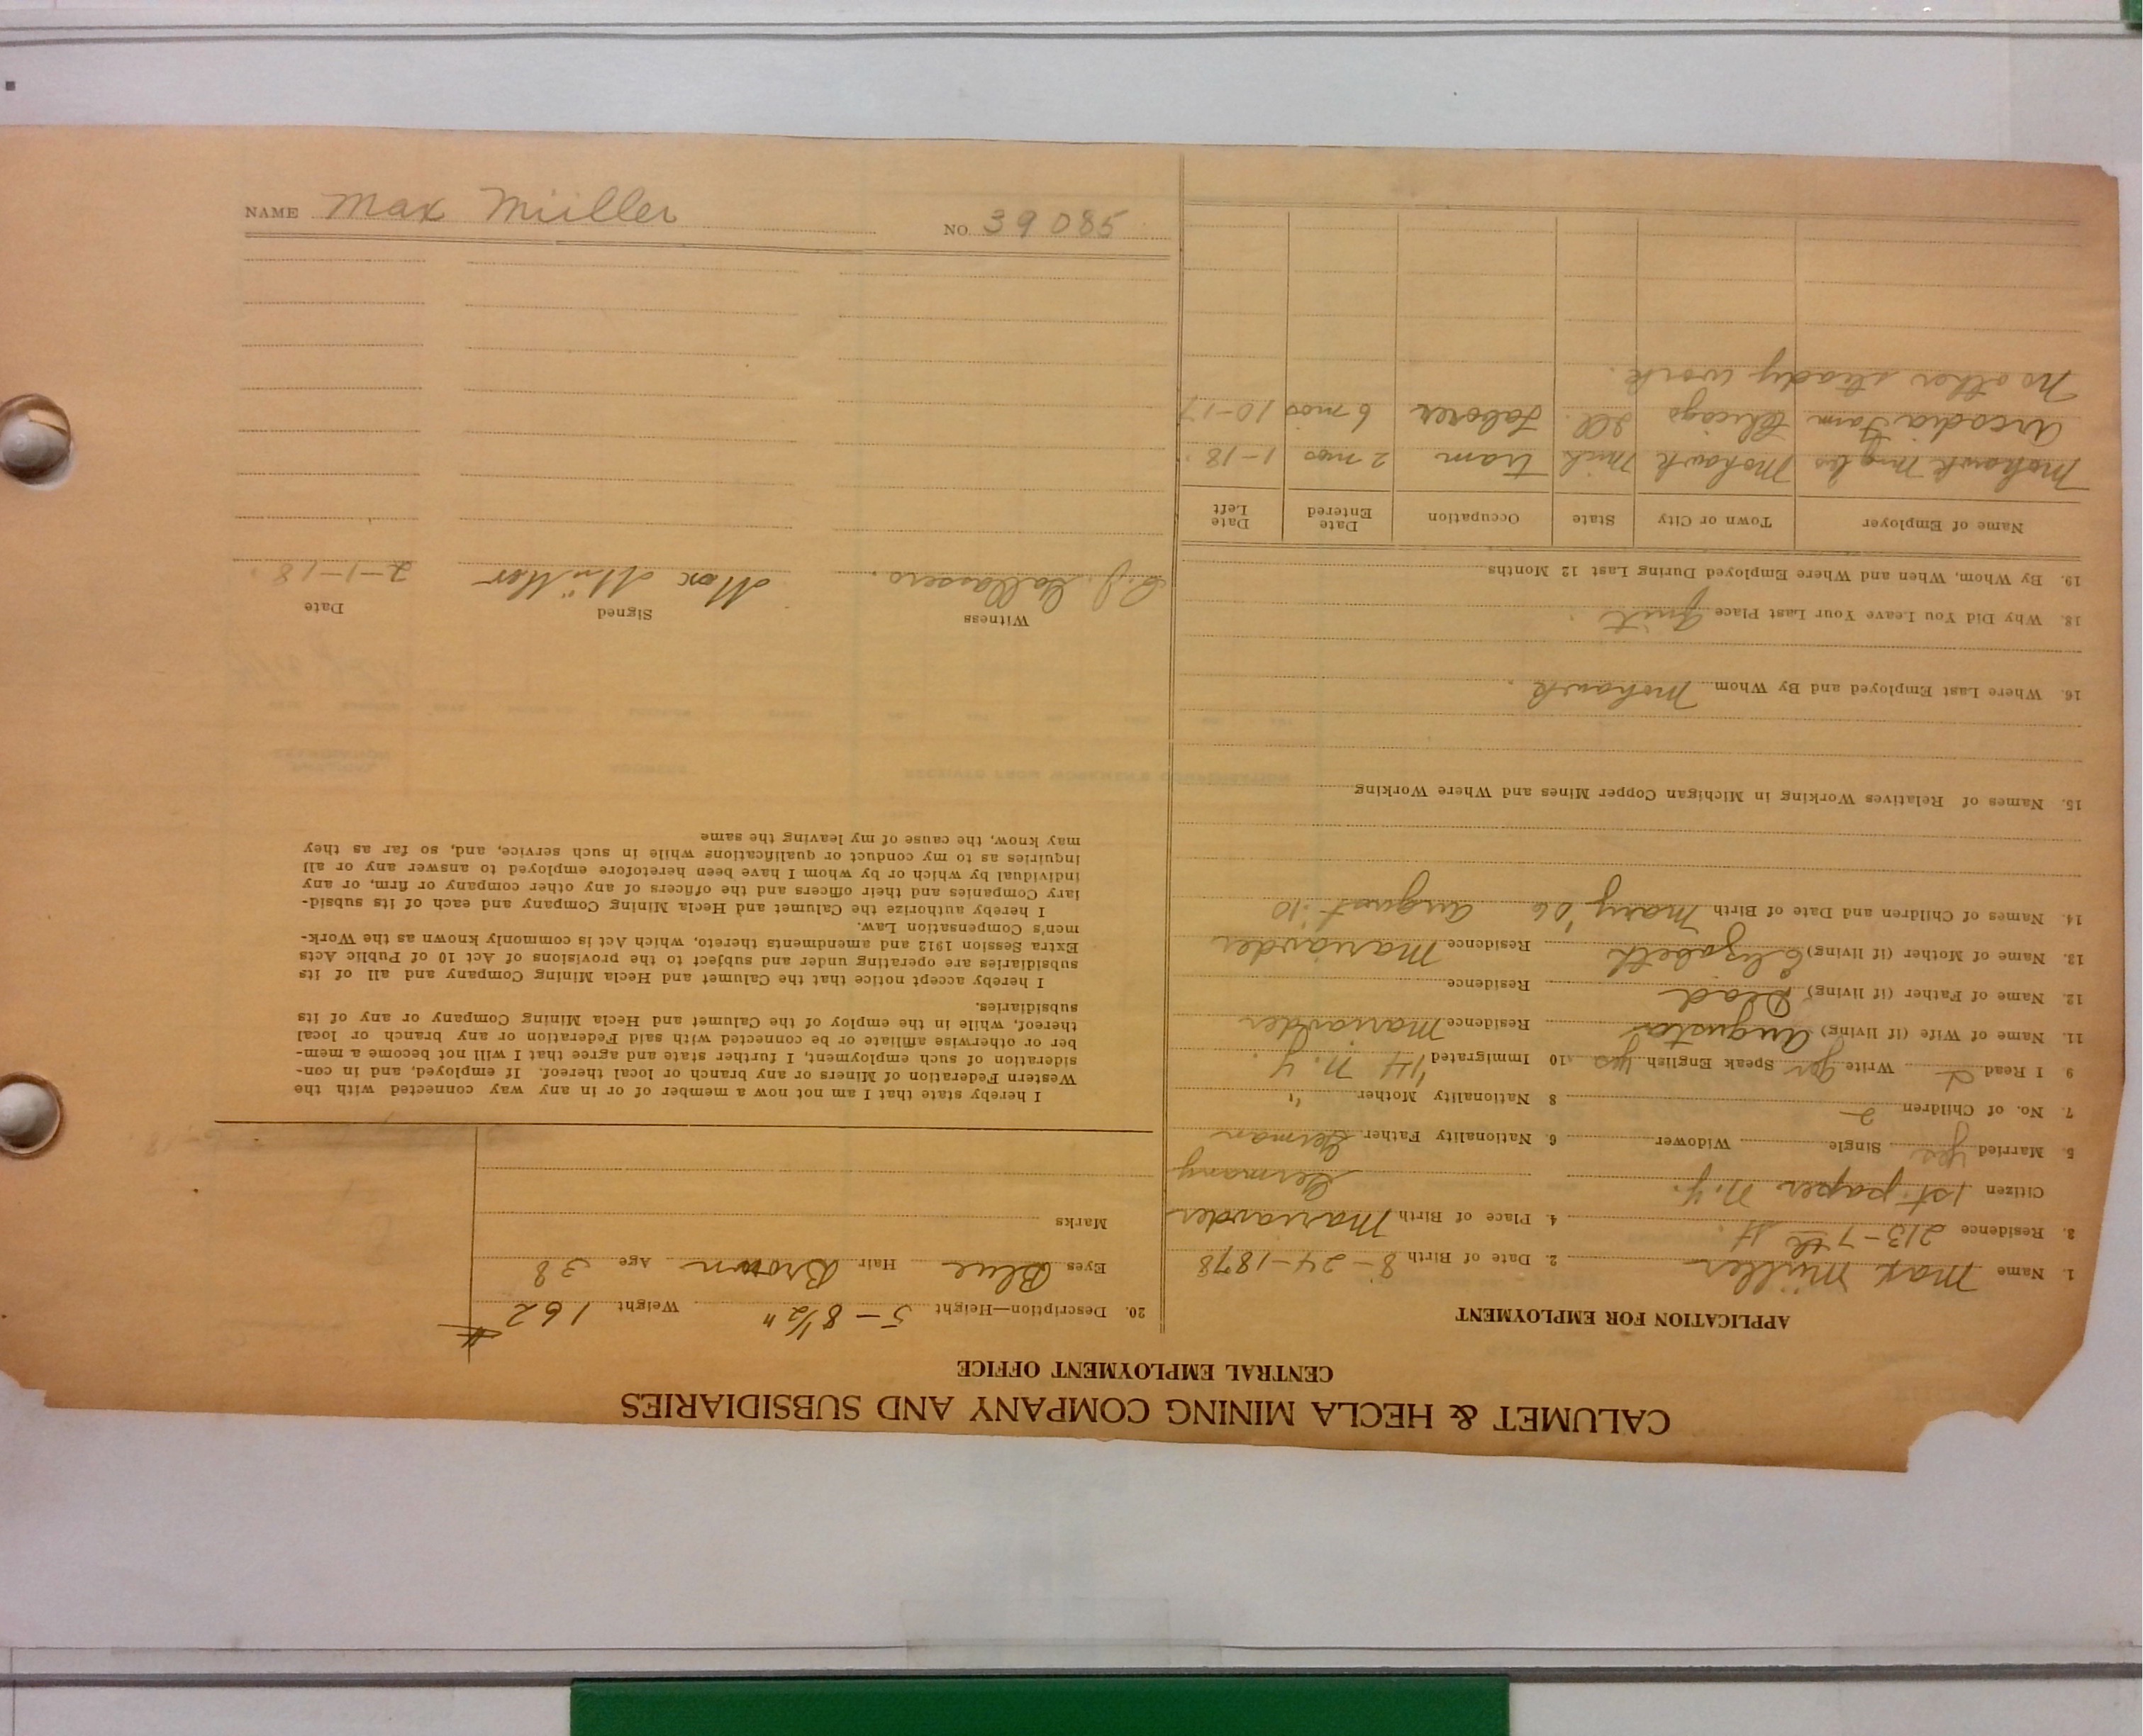 CALUMET & HECLA MINING COMPANY AND SUBSIDIARIES
CENTRAL EMPLOYMENT OFFICE
APPLICATION FOR EMPLOYMENT
1. Name Max Müller 2. Date of Birth 8-24-1878
3. Residence 213-7th St. 4. Place of Birth Mariavder
Citizen 1st. paper N.Y. Germany
5. Married yes Single Widower 6. Nationality Father German
7. No. of Children 2 8 Nationality Mother "
9 I Read Write Speak English yes 10 Immigrated '14 N.Y.
11. Name of Wife (if living) Augusta Residence Mariavder
12. Name of Father (if living) Dead Residence
13. Name of Mother (if living) Elizabeth Residence Mariavder
14. Names of Children and Date of Birth Mary '06 August '10
15. Names of Relatives Working in Michigan Copper Mines and Where Working
16. Where Last Employed and By Whom Mohawk.
18. Why Did You Leave Your Last Place Quit.
19. By Whom, When and Where Employed During Last 12 Months
Name of Employer Town or City State Occupation Date Entered Date Left
Mohawk Mng Co Mohawk Mich tram 2 mos 1-18.
Arcadia Farm Chicago Ill. Laborer 6 mos 10-17
No other steady work.
20. Description—Height 5-8½" Weight 162#
Eyes Blue Hair Brown Age 38
Marks
I hereby state that I am not now a member of or in any way connected with the
Western Federation of Miners or any branch or local thereof. If employed, and in con-
sideration of such employment, I further state and agree that I will not become a mem-
ber or otherwise affiliate or be connected with said Federation or any branch or local
thereof, while in the employ of the Calumet and Hecla Mining Company or any of its
subsidiaries.
I hereby accept notice that the Calumet and Hecla Mining Company and all of its
subsidiaries are operating under and subject to the provisions of Act 10 of Public Acts
Extra Session 1912 and amendments thereto, which Act is commonly known as the Work-
men's Compensation Law.
I hereby authorize the Calumet and Hecla Mining Company and each of its subsid-
iary Companies and their officers and the officers of any other company or firm, or any
individual by which or by whom I have been heretofore employed to answer any or all
inquiries as to my conduct or qualifications while in such service, and, so far as they
may know, the cause of my leaving the same
Witness Signed Date
Max Müller 2-1-18.
NAME Max Müller NO 39085